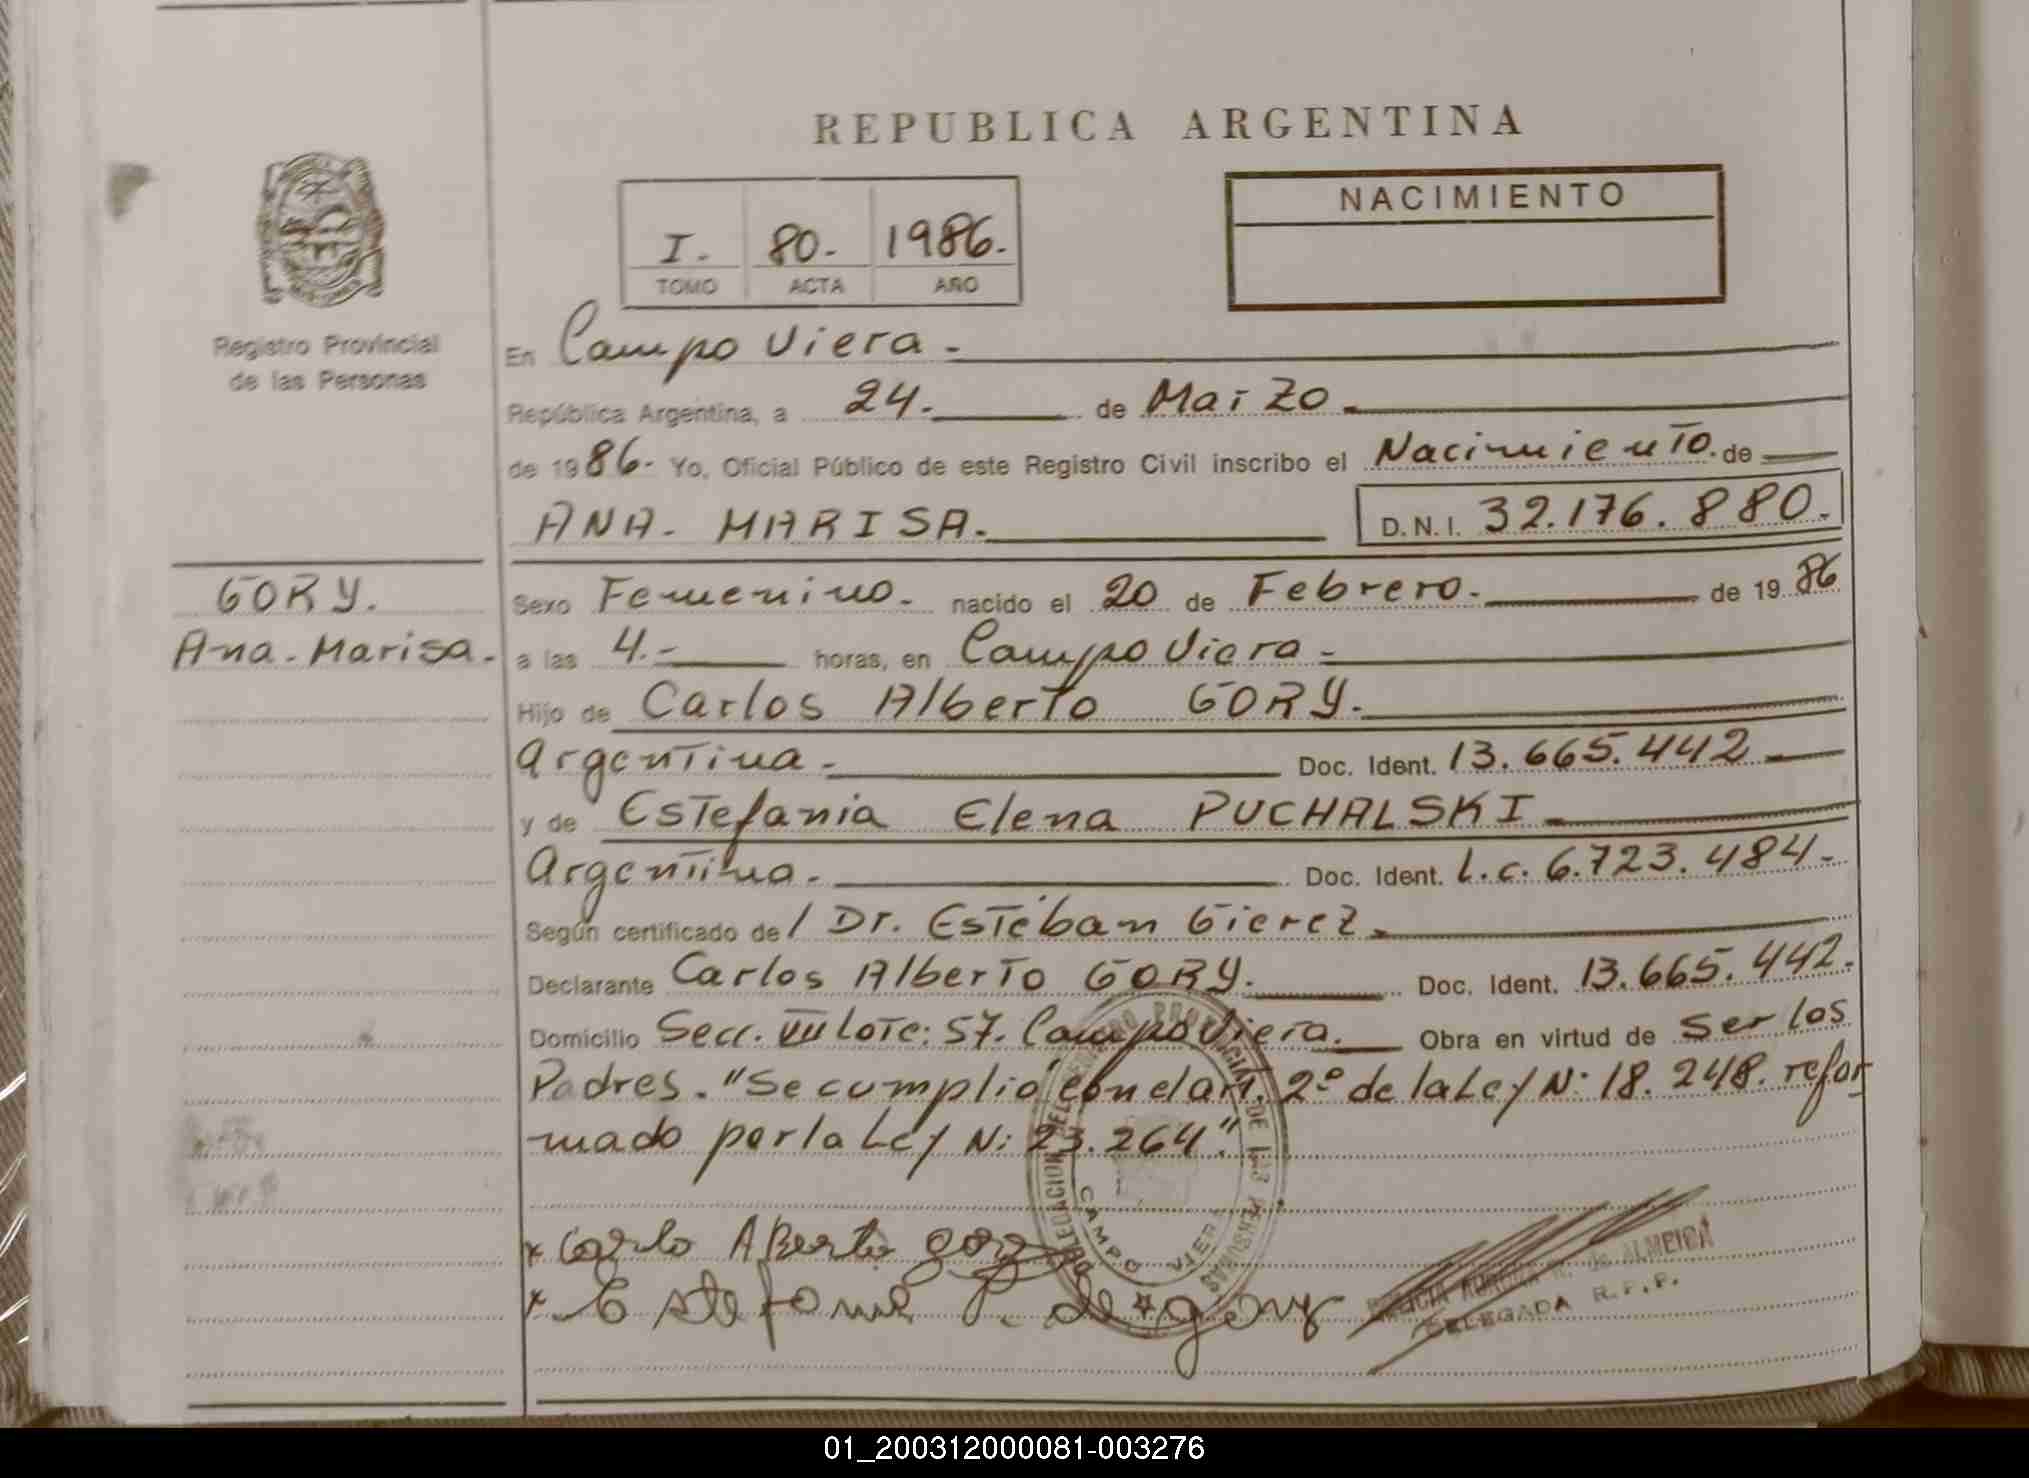 REPUBLICA ARGENTINA
NACIMIENTO
I. 80. 1986.
TOMO ACTA AÑO
Registro Provincial
de las Personas
En Campo Viera.
República Argentina, a 24. de Marzo.
de 1986. Yo, Oficial Público de este Registro Civil inscribo el Nacimiento. de
ANA. MARISA. D.N.I. 32.176.880.
GORY.
Ana. Marisa.
Sexo Femenino. nacido el 20 de Febrero. de 1986
a las 4.- horas, en Campo Viera.
Hijo de Carlos Alberto GORY.
Argentina. Doc. Ident. 13.665.442
y de Estefania Elena PUCHALSKI
Argentina. Doc. Ident. L.c. 6.723.484.
Según certificado de/ Dr. Esteban Gierez.
Declarante Carlos Alberto GORY. Doc. Ident. 13.665.442.
Domicilio Secc. VII Lote: 57. Campo Viera. Obra en virtud de Ser los
Padres. "Se cumplió con el art. 2º de la Ley N: 18.248. refor
mado por la Ley N: 23.264".
DELEGACION DEL REGISTRO PROVINCIAL DE LAS PERSONAS
CAMPO VIERA
x Carlo Alberto gory
x Estefania P. de gory
ALMEIDA
DELEGADA R.P.P.
01_200312000081-003276